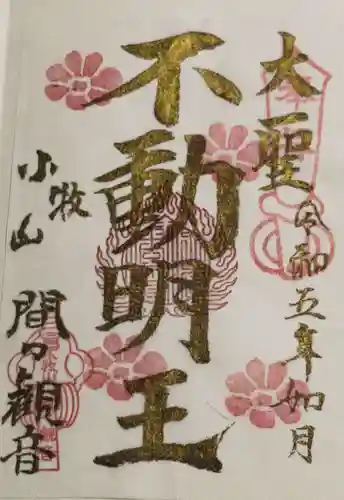 大聖
令和五年如月
不動明王
小牧山
間々観音